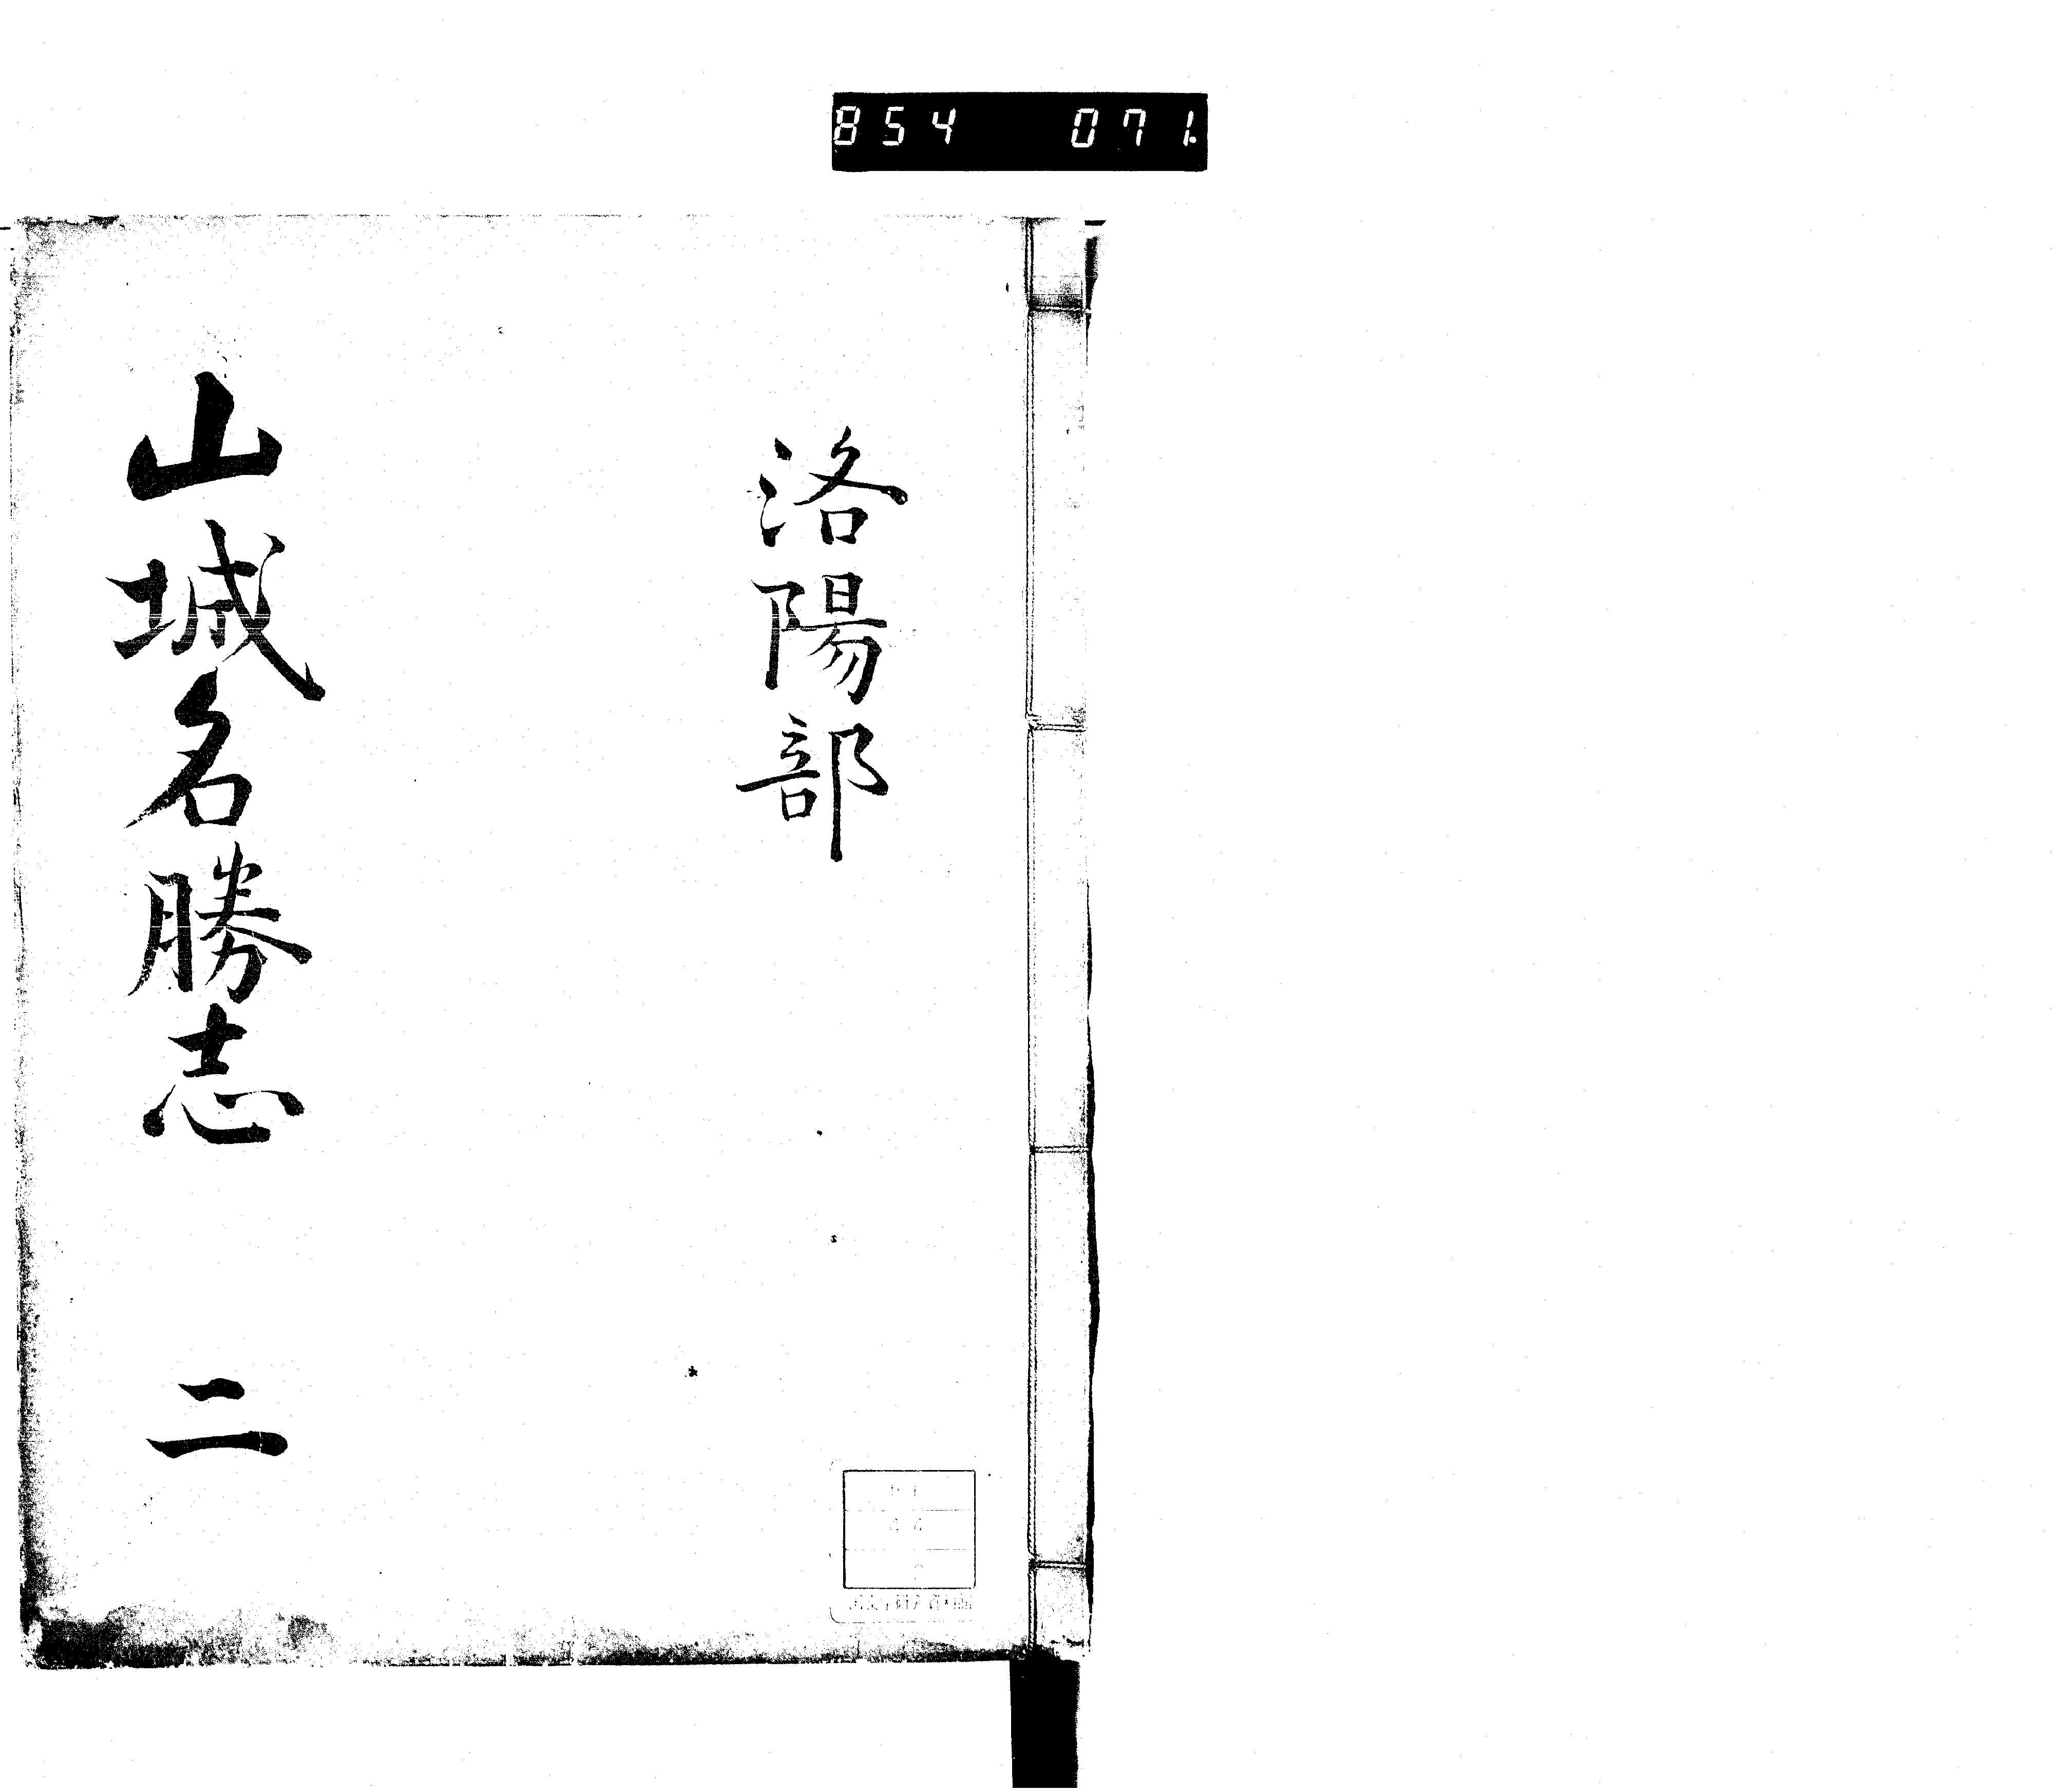 854 071.
洛陽部
山城名勝志 二